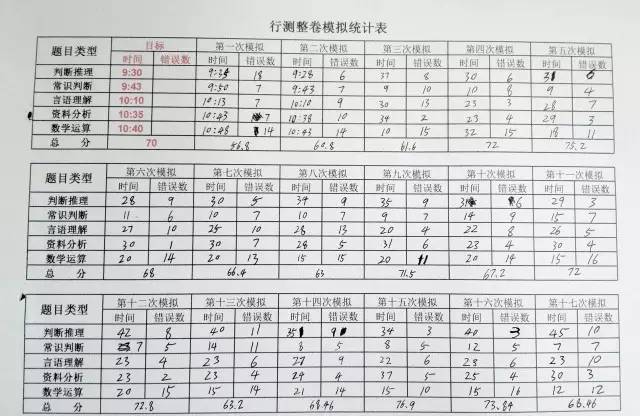 行测整卷模拟统计表
题目类型 目标 第一次模拟 第二次模拟 第三次模拟 第四次模拟 第五次模拟
时间 错误数 时间 错误数 时间 错误数 时间 错误数 时间 错误数 时间 错误数
判断推理 9:30 18 9:28 6 37 8 30 6
常识判断 9:43 9:50 7 9:43 7 9 10 10 8 9 4
言语理解 10:10 10:13 7 10:10 9 30 13 23 3 28 7
资料分析 10:35 10:43 7 10:38 10 34 2 23 4 29 3
数学运算 10:40 10:48 14 10:43 14 10 15 32 15 18 11
总分 70 56.8 60.8 61.6 72 75.2
题目类型 第六次模拟 第七次模拟 第八次模拟 第九次模拟 第十次模拟 第十一次模拟
时间 错误数 时间 错误数 时间 错误数 时间 错误数 时间 错误数 时间 错误数
判断推理 28 9 30 5 34 9 35 9 6 29 3
常识判断 11 6 10 7 10 7 9 7 14 9 15 7
言语理解 27 10 25 10 28 13 20 4 22 8 26 5
资料分析 30 1 30 7 28 5 31 6 23 4 30 4
数学运算 20 14 20 13 15 15 20 11 20 14 15 16
总分 68 66.4 63 71.5 67.2 72
题目类型 第十二次模拟 第十三次模拟 第十四次模拟 第十五次模拟 第十六次模拟 第十七次模拟
时间 错误数 时间 错误数 时间 错误数 时间 错误数 时间 错误数 时间 错误数
判断推理 42 8 40 11 35 9 34 3 40 3 45 10
常识判断 7 5 14 11 8 5 8 5 12 5 7 7
言语理解 23 4 23 6 27 9 22 6 28 6 23 10
资料分析 23 2 23 4 24 4 37 5 25 4 30 3
数学运算 20 15 15 14 21 14 15 10 15 16 12 12
总分 72.8 63.2 68.46 76.9 73.84 68.46